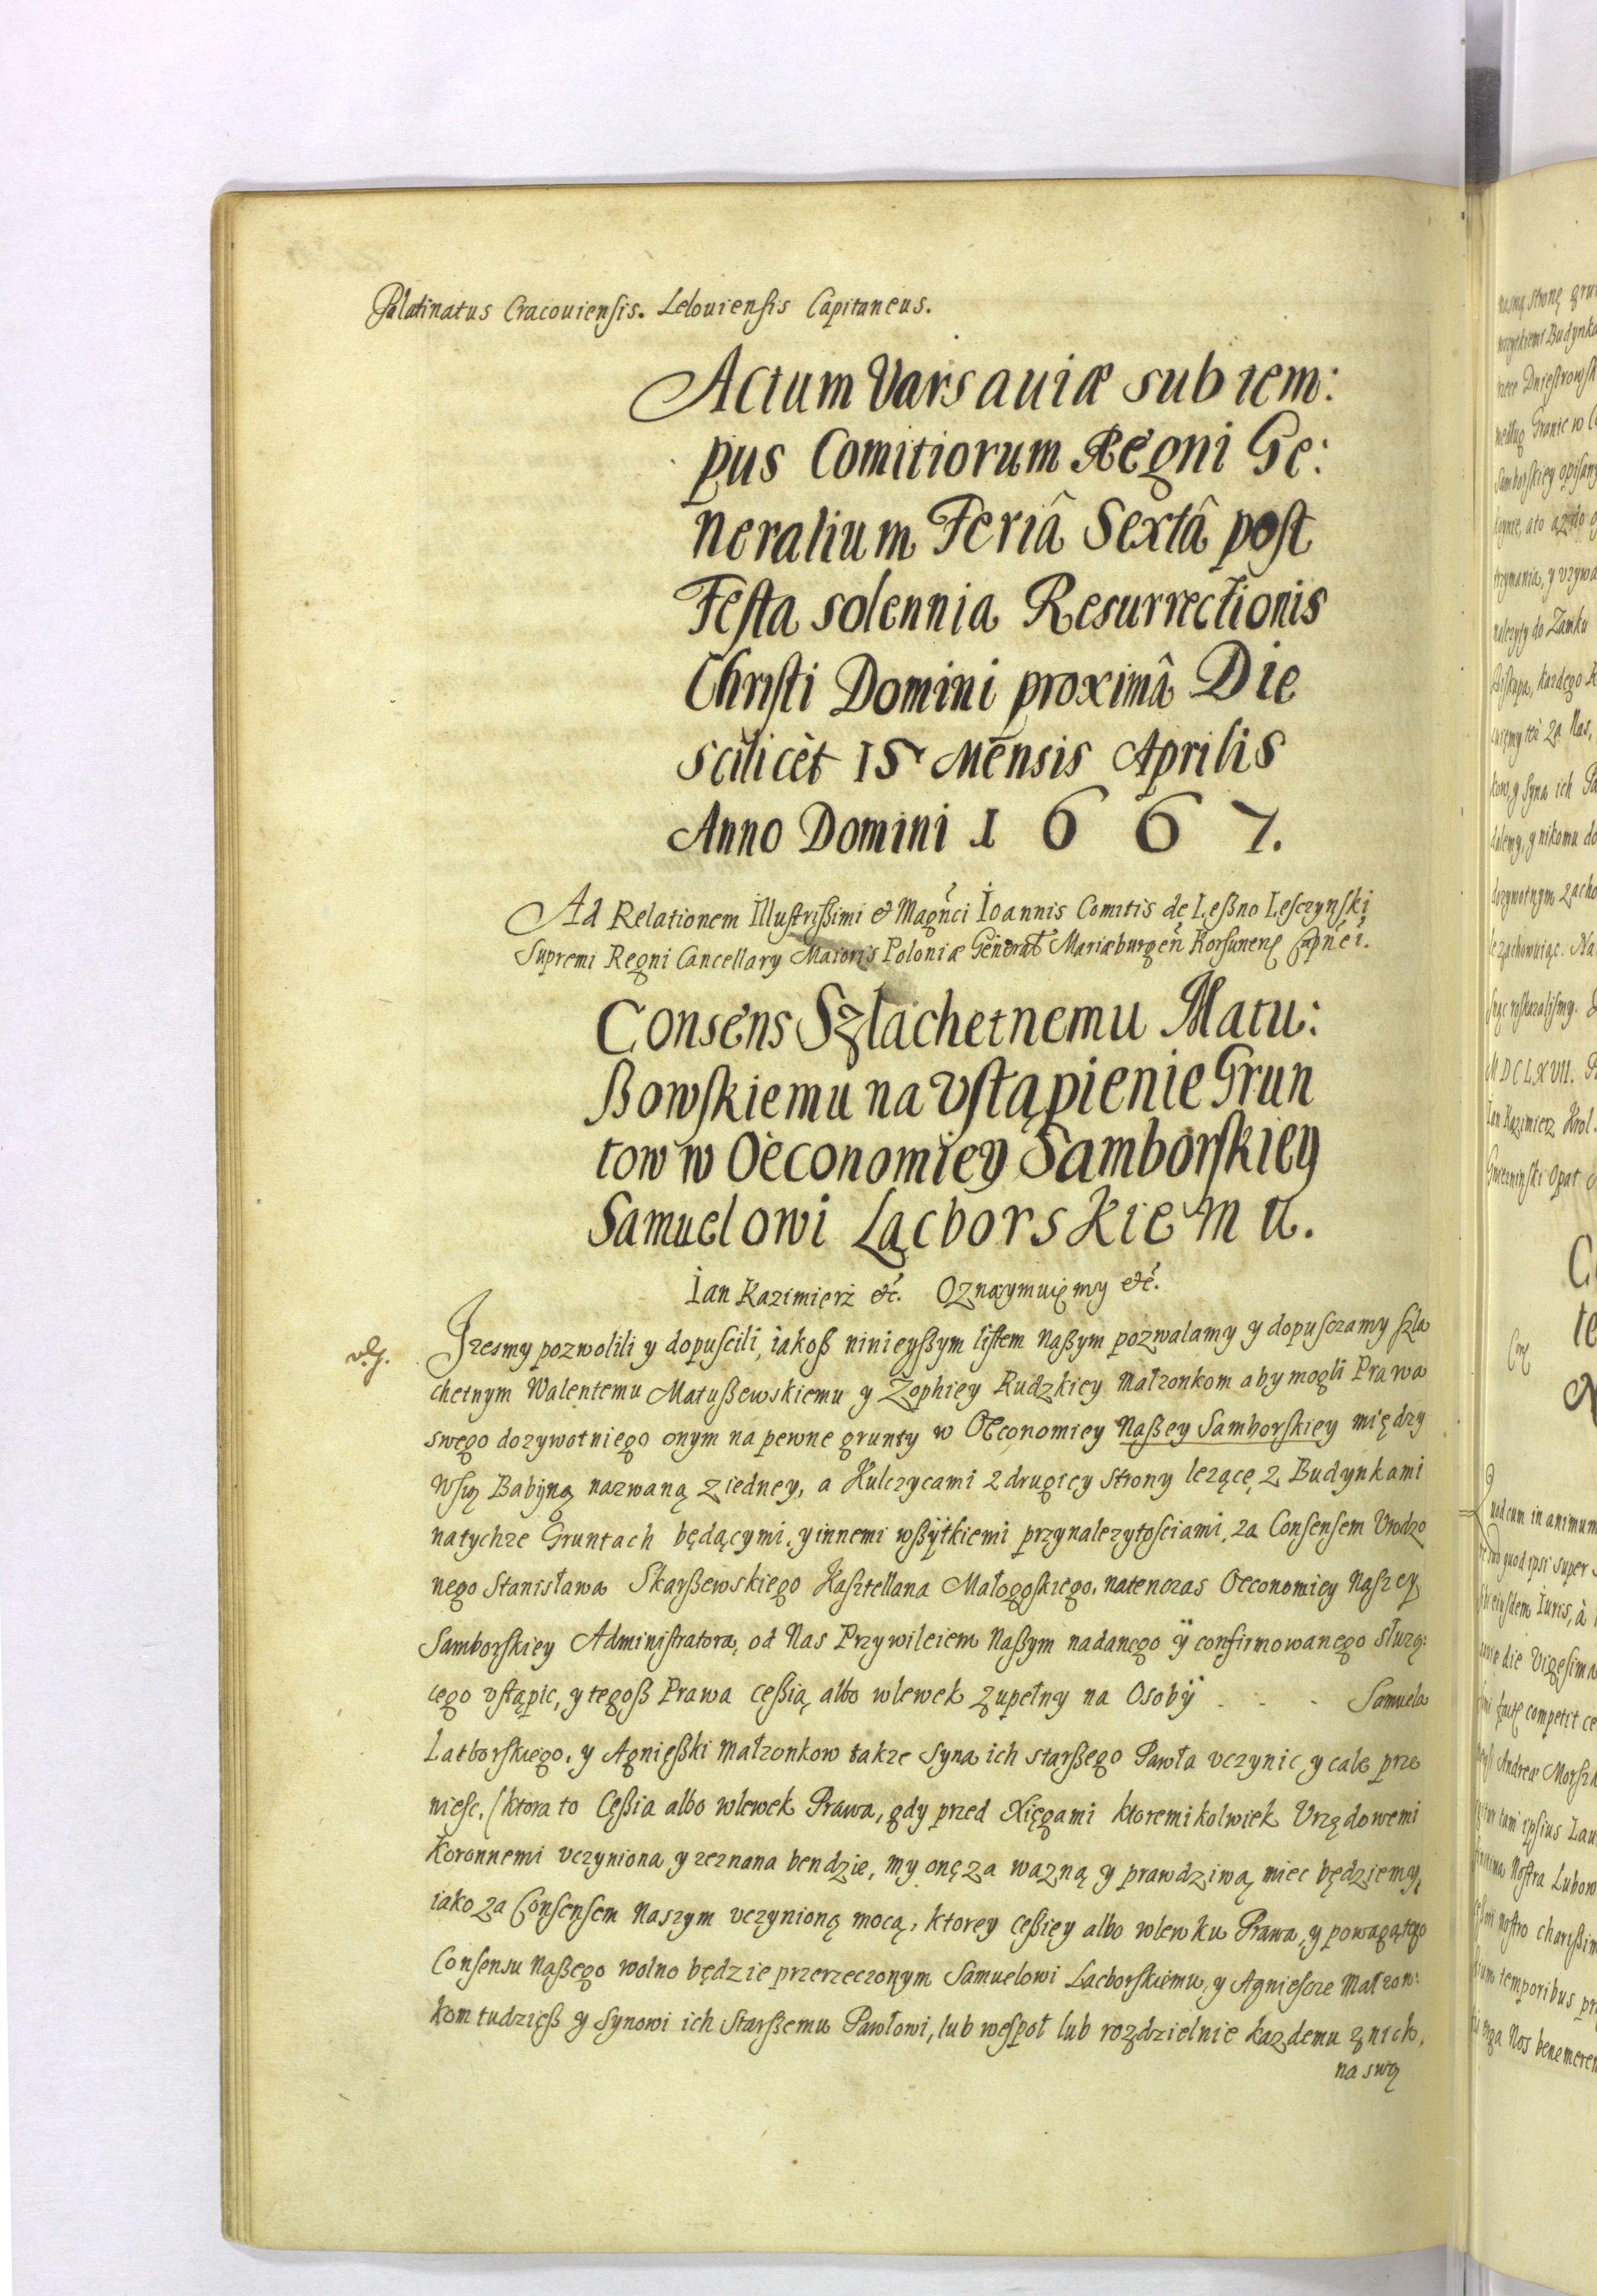 Palatinatus Cracouiensis. Lelouiensis Capitaneus.
Actum Varsauiæ sub tem:
pus Comitiorum Regni Ge:
neralium Feriâ Sextâ post
Festa solennia Resurrectionis
Christi Domini proximâ Die
scilicèt 15 Mensis Aprilis
Anno Domini 1667.
Ad Relationem Illustrißimi et Magnci Ioannis Comitis de Leßno Lesczynski
Supremi Regni Cancellary Maioris Poloniæ Generał Mariæburgen Korsunen Capnei.
Consens Szlachetnemu Matu:
ßowskiemu na vstąpienie Grun
tow w Oeconomiey Samborskiey
Samuelowi Lącborskiemu.
Ian Kazimierz etc. Oznaymuięmy etc.
Izesmy pozwolili y dopuscili, iakoß ninieyßym listem naßym pozwalamy y dopusczamy szla
chetnym Walentemu Matußewskiemu y Zophiey Rudzkiey Małzonkom aby mogli Prawa
swego dozywotniego onym na pewne grunty w Oeconomiey Naßey Samborskiey między
Wsią Babiną nazwaną z iedney, a Kulczycami z drugiey strony lezącę, z Budynkami
na tychze Gruntach będącymi, y innemi wßytkiemi przynalezytosciami, za Consensem Vrodzo
nego Stanisława Skarßewskiego Kasztellana Małogoskiego, natenczas Oeconomiey Naszey
Samborskiey Administratora, od Nas Przywileiem Naßym nadanego y confirmowanego słuzą:
cego vstąpic, y tegoß Prawa ceßią albo wlewek zupełny na Osoby . . . Samuela
Latborskiego, y Agnießki Małzonkow takze syna ich starßego Pawła vczynic, y cale prze
niesc, (ktora to Ceßia albo wlewek Prawa, gdy przed Xięgami ktoremikolwiek Vrzędowemi
Koronnemi vczyniona y zeznana bendzie, my onę za wazną y prawdziwą miec będziemy,
iako za Consensem Naszym vczynioną mocą, ktorey ceßiey albo wlewku Prawa, y powagą tego
Consensu Naßego wolno będzie przerzeczonym Samuelowi Lacborskiemu, y Agniescze Małzon:
kom tudzieß y Synowi ich Starßemu Pawłowi, lub wespoł lub rozdzielnie kazdemu z nich,
na swą